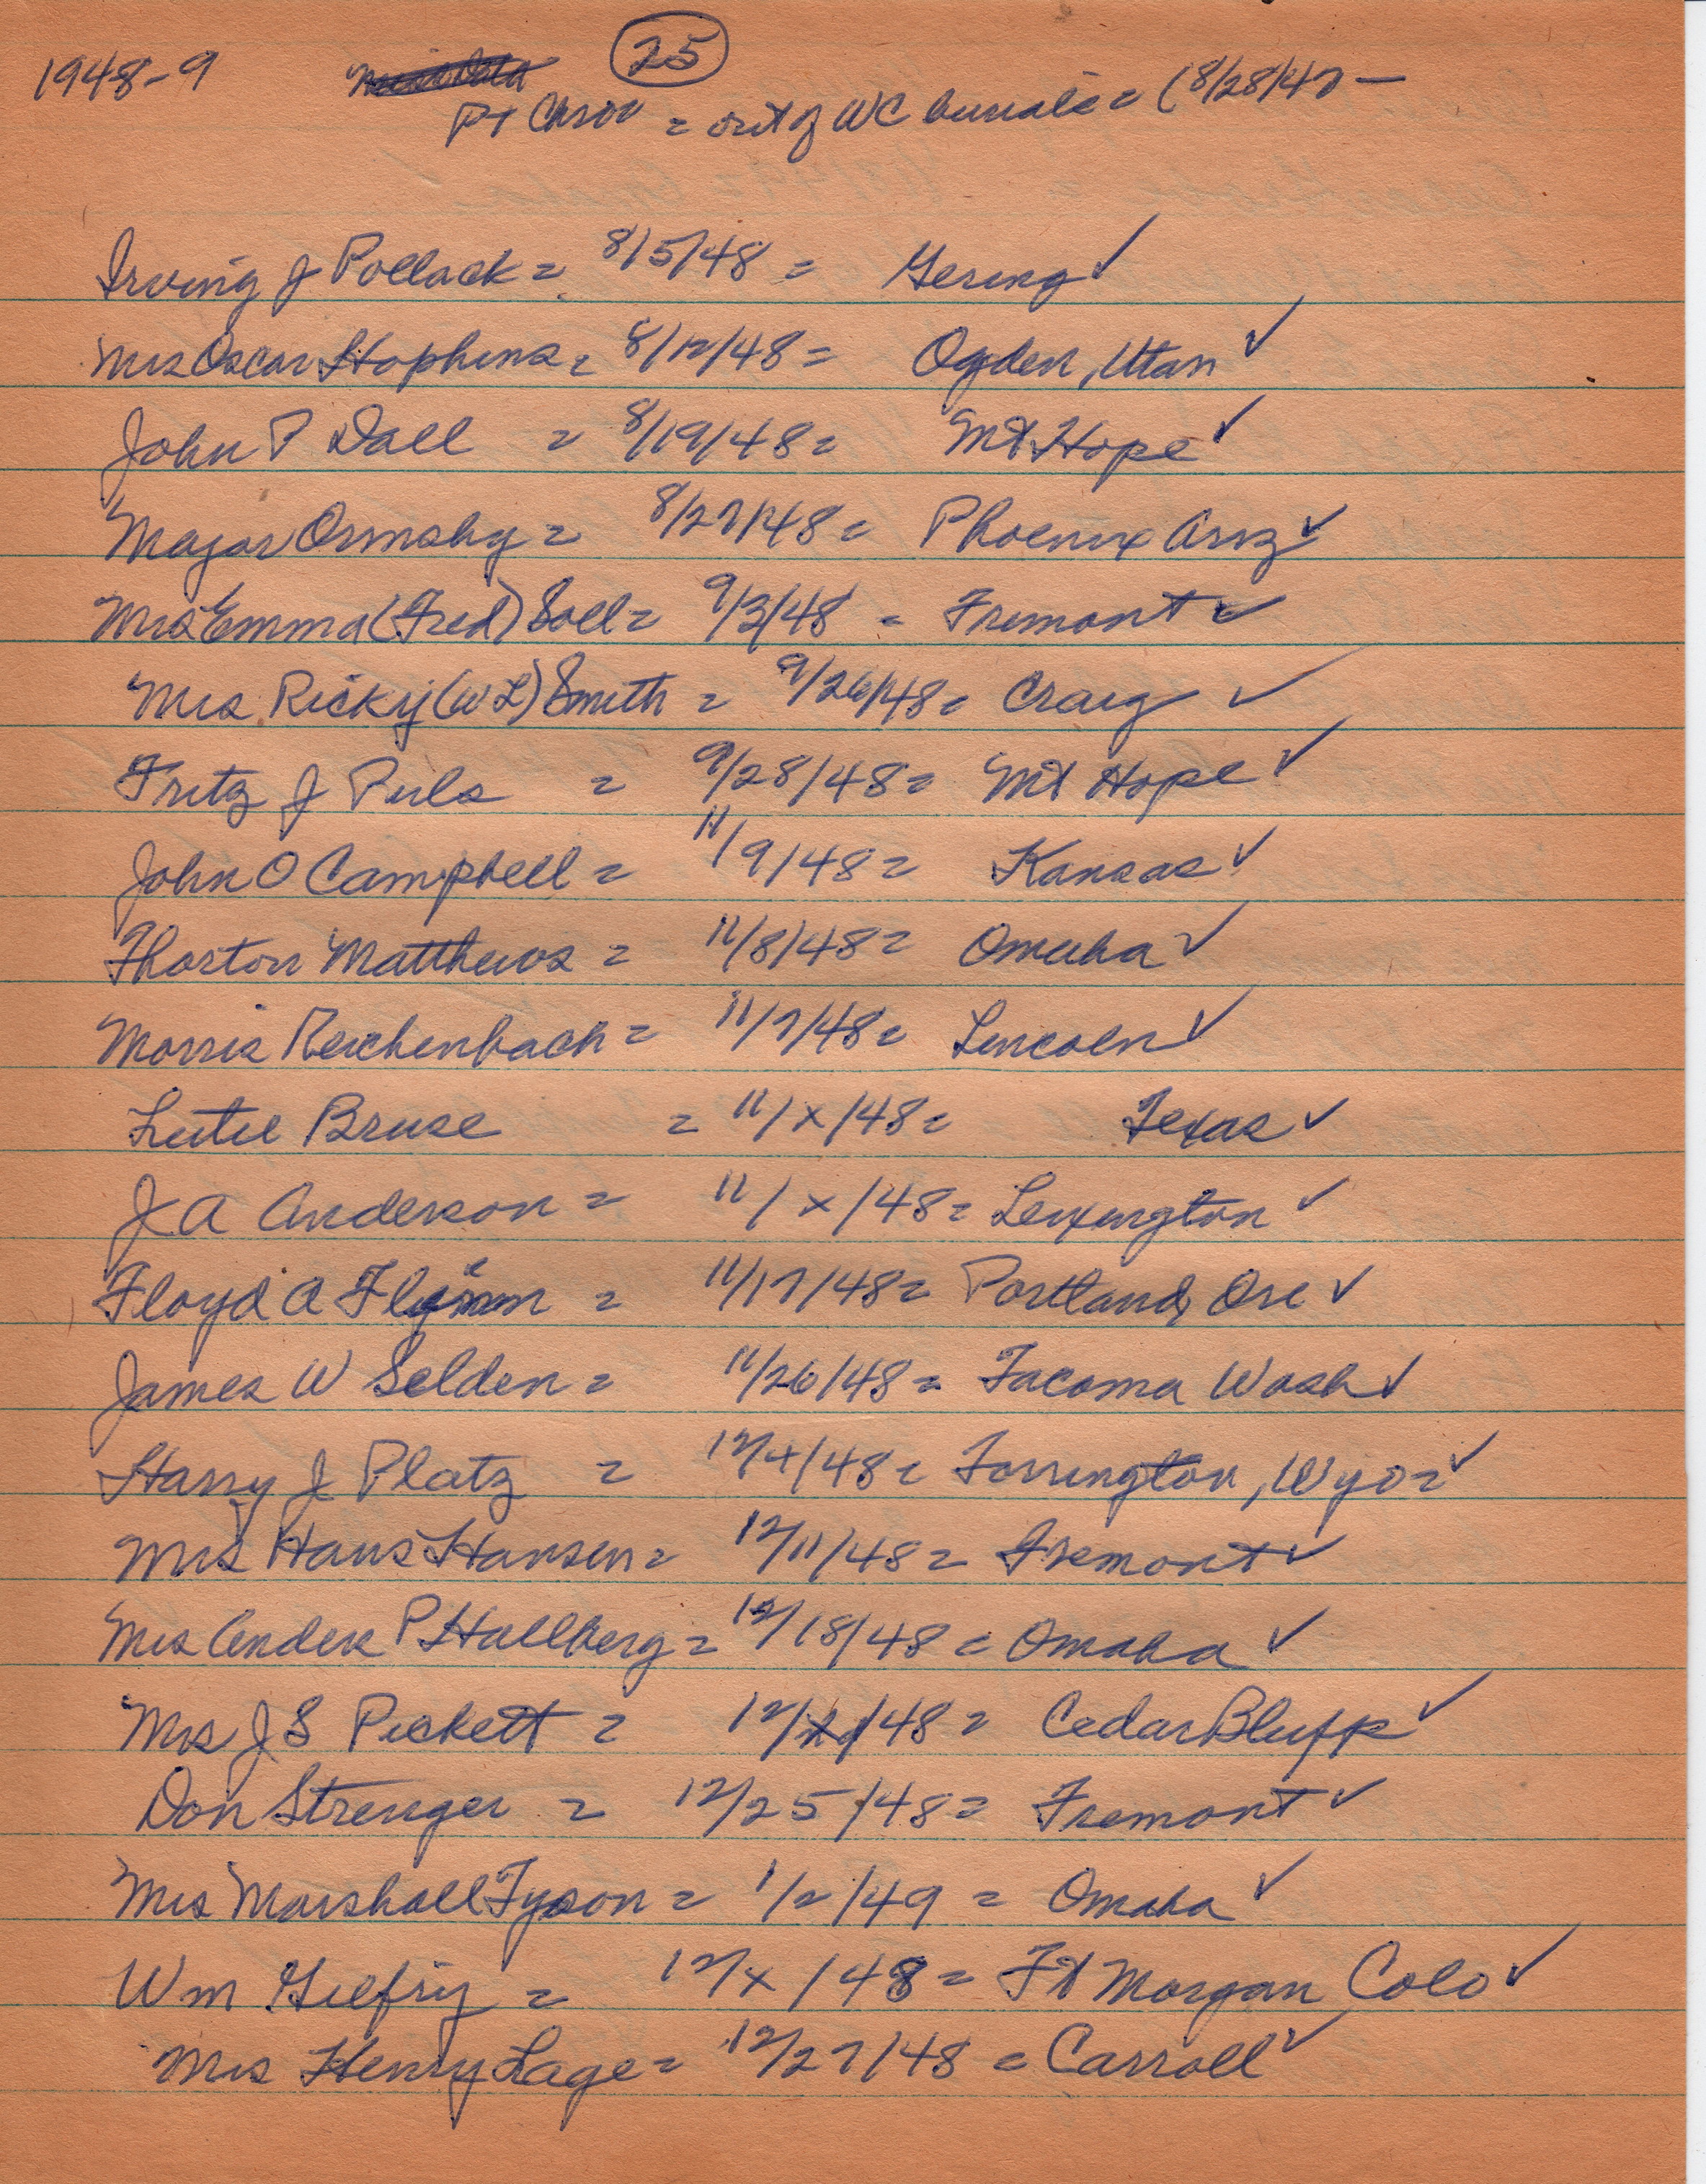 1948-9
25
Pt Chron = out of WC burials = (8/28/47 —
Irving J Pollack = 8/5/48 = Gering ✓
Mrs Oscar Hopkins = 8/12/48 = Ogden, Utah ✓
John P Dall = 8/19/48 = Mt Hope ✓
Major Ormsby = 8/27/48 = Phoenix Ariz ✓
Mrs Emma (Fred) Soll = 9/3/48 = Fremont ✓
Mrs Ricky (W L) Smith = 9/26/48 = Craig ✓
Fritz J Puls = 9/28/48 = Mt Hope ✓
John O Campbell = 11/9/48 = Kansas ✓
Thorton Matthews = 11/8/48 = Omaha ✓
Morris Reichenbach = 11/7/48 = Lincoln ✓
Lutie Bruse = 11/x/48 = Texas ✓
J A Anderson = 11/x/48 = Lexington ✓
Floyd A = 11/17/48 = Portland, Ore ✓
James W Selden = 11/26/48 = Tacoma Wash ✓
Harry J Platz = 12/4/48 = Torrington, Wyo = ✓
Mrs Hans Hansen = 12/11/48 = Fremont ✓
Mrs Anders P Hallberg = 12/18/48 = Omaha ✓
Mrs J S Pickett = 12/21/48 = Cedar Bluff ✓
Don Strenger = 12/25/48 = Fremont ✓
Mrs Marshall Tyson = 1/2/49 = Omaha ✓
Wm Gilfry = 12/x/48 = Ft Morgan Colo ✓
Mrs Henry Lage = 12/27/48 = Carroll ✓